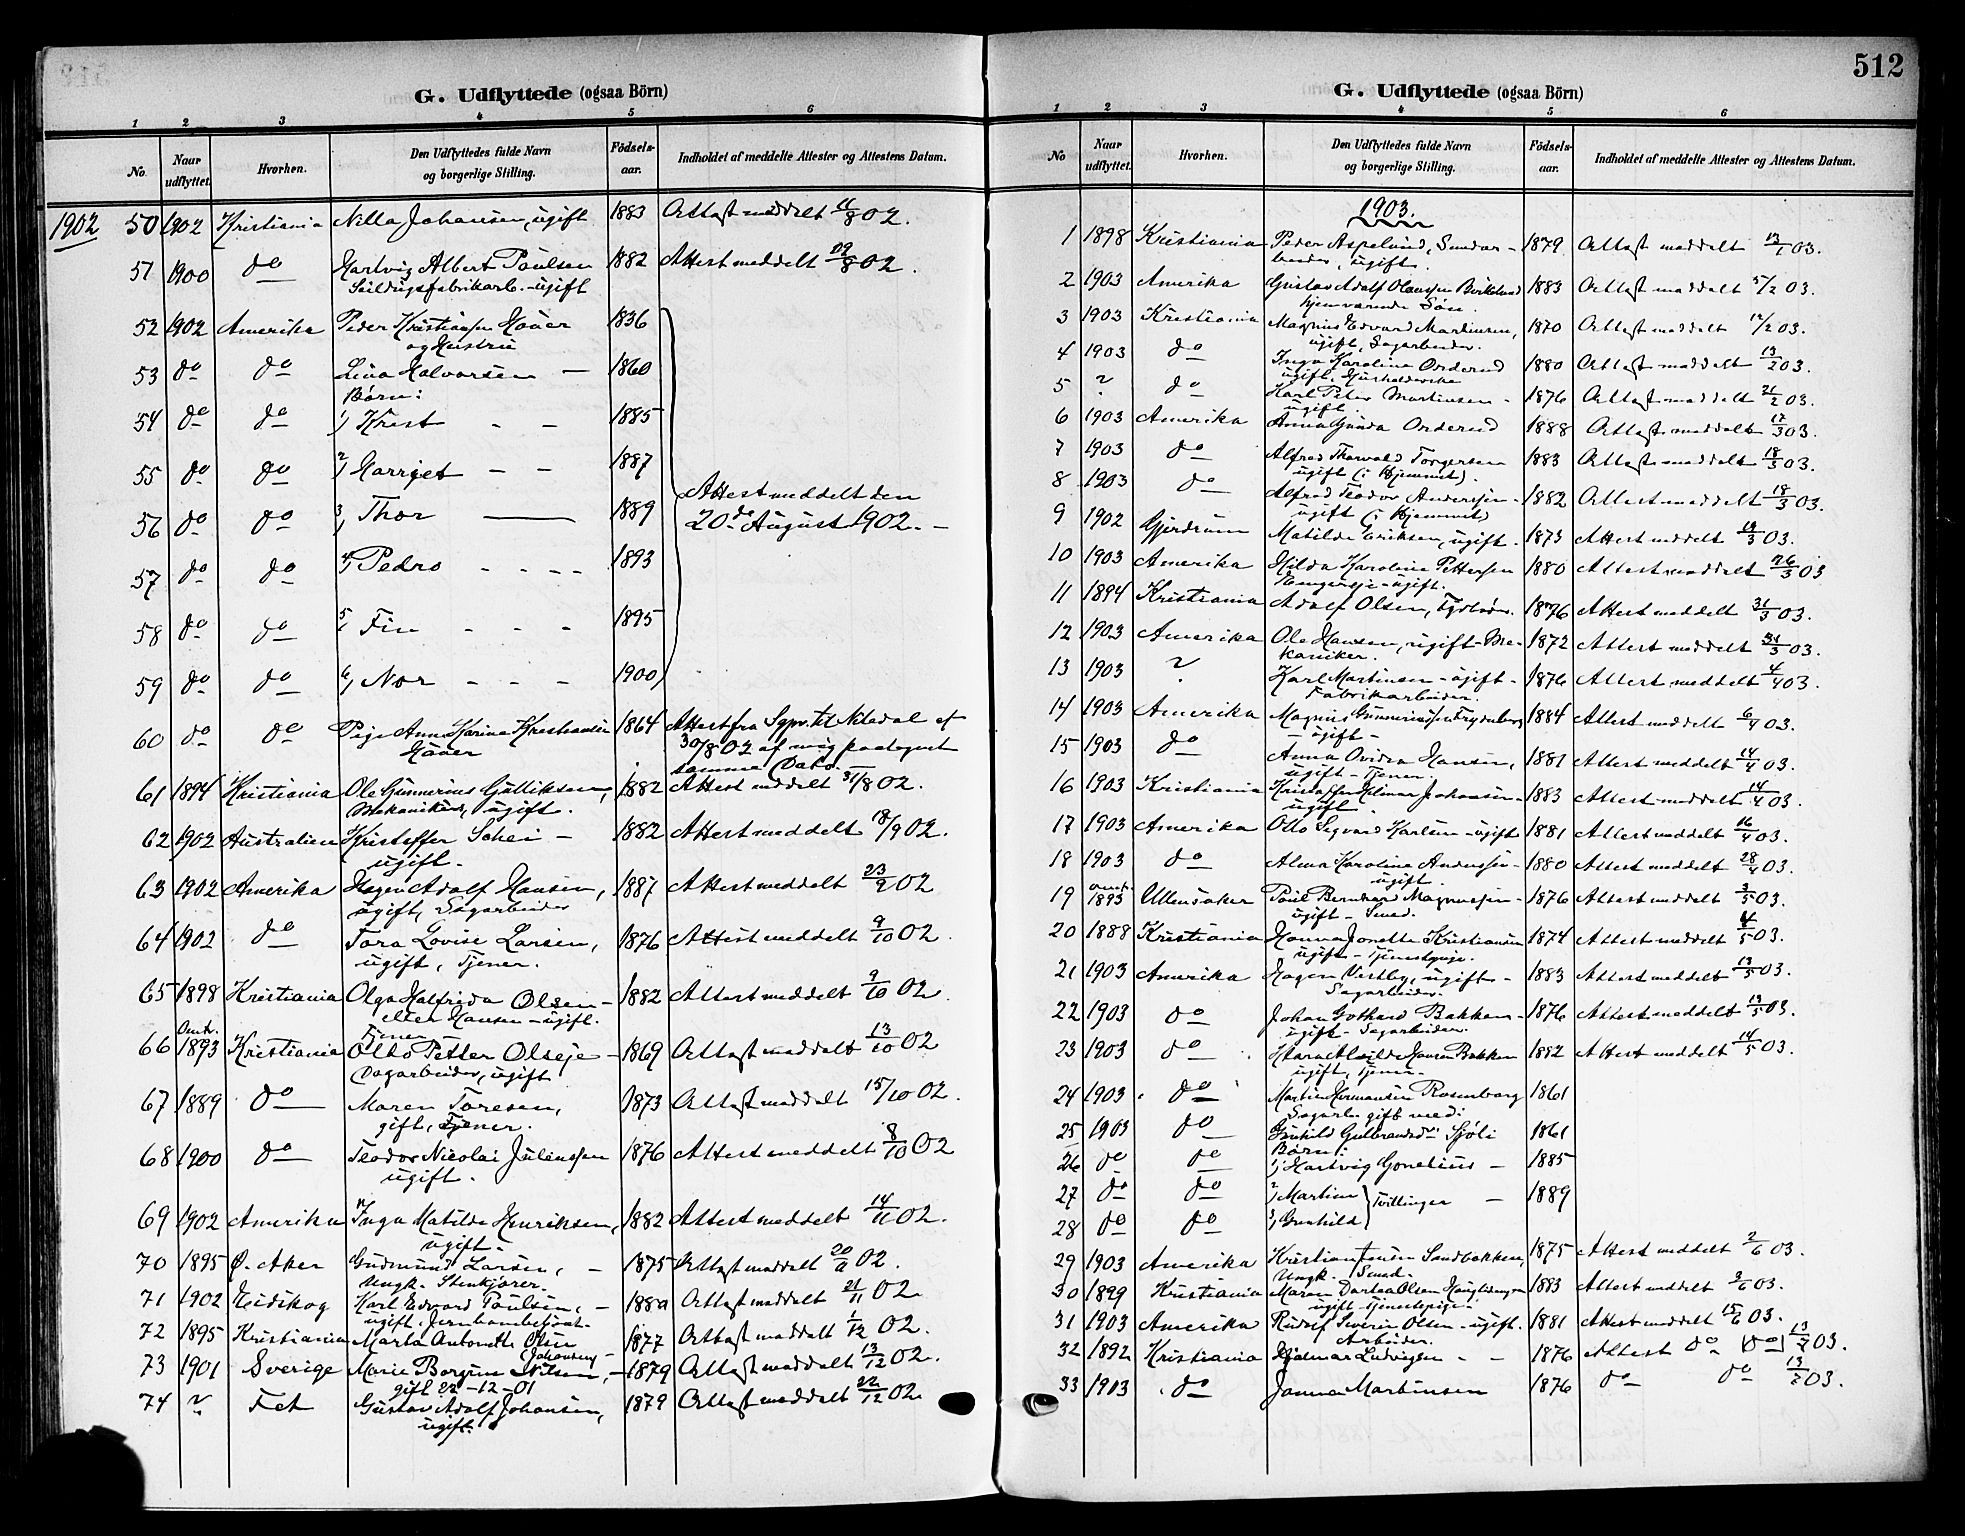 512
G. Udflyttede (ogsaa Börn)
1 2 3 4 5 6
No. Naar udflyttet. Hvorhen. Den Udflyttedes fulde Navn og borgerlige Stilling. Födsels-aar. Indholdet af meddelte Attester og Attestens Datum.
1902 50 1902 Kristiania Nilla Johansen, ugift 1883 Attest meddelt 11/8 02.
51 1900 do Hartvig Albert Paulsen 1882 Attest meddelt 19/8 02.
Seildugsfabrikarb. - ugift
52 1902 Amerika Peder Kristiansen Hauer 1836
og Hustru
53 do do Lina Halvorsen — 1860
Børn:
54 do do 1) Krest - - 1885
55 do do 2) Harriet - - 1887
Attest meddelt den
56 do do 3) Thor — 1889 20de August 1902. -
57 do do 4) Pedro - - - - 1893
58 do do 5) Fin - - - 1895
59 do do 6) Nor - - - 1900
60 do do Pige Anne Karine Kristiansen 1864 Attest fra Sgpr. til Nitedal af
Hauer 30/8 02 af mig paategnet
samme Dato.
61 1894 Kristiania Ole Gunnerius Gulliksen, 1882 Attest meddelt 31/8 02.
Mekaniker, ugift.
62 1902 Australien Kristoffer Schei - 1882 Attest meddelt 18/9 02.
ugift.
63 1902 Amerika Hagen Adolf Hansen, 1887 Attest meddelt 23/9 02
ugift, Sagarbeider
64 1902 do Tora Lovise Larsen, 1876 Attest meddelt 9/10 02.
ugift, Tjener.
65 1898 Kristiania Olga Halfrida Olsen - 1882 Attest meddelt 9/10 02.
eller Hansen - ugift.
Tjener
66 Omtr. 1893 Kristiania Otto Petter Olseje - 1869 Attest meddelt 13/10 02
Dagarbeider, ugift
67 1889 do Maren Toresen, 1873 Attest meddelt 15/10 02.
gift, Tjener.
68 1900 do Teodor Nicolai Julenssen 1876 Attest meddelt 8/10 02
ugift.
69 1902 Amerika Inga Matilde Henriksen, 1882 Attest meddelt 14/11 02.
ugift.
70 1895 Ø. Aker Gudmund Larsen, - 1875 Attest meddelt 20/11 02.
Ungk. Stenkjører.
71 1902 Eidskog Karl Edvard Paulsen, - Attest meddelt 21/11 02.
ugift.
72 1895 Kristiania Marta Antonette Olsen 1877 Attest meddelt 1/12 02.
(Johansen) -
73 1901 Sverige Marie Borgine Nilsen, - 1879 Attest meddelt 13/12 02.
gift 22-12-01
74 ? Fet Gustav Adolf Johansen, 1879 Attest meddelt 22/12 02.
ugift.
G. Udflyttede (ogsaa Börn)
1 2 3 4 5 6
No Naar udflyttet. Hvorhen. Den Udflyttedes fulde Navn og borgerlige Stilling. Födsels-aar. Indholdet af meddelte Attester og Attestens Datum.
1903.
1 1898 Kristiania Peder Aspelund, 1879 Attest meddelt 12/1 03.
ugift.
2 1903 Amerika Gustav Adolf Olaussen Birkelund 1883 Attest meddelt 5/2 03.
hjemværende Søn.
3 1903 Kristiania Magnus Edvard Martinsen, 1870 Attest meddelt 12/2 03.
ugift, Sagarbeider.
4 1903 do Inga Karoline Orderud 1880 Attest meddelt 13/2 03.
ugift, Husholderske
5 ? do Karl Peter Martinsen - 1876 Attest meddelt 21/2 03.
ugift.
6 1903 Amerika Anna Gunda Orderud 1888 Attest meddelt 17/3 03.
7 1903 do Alfred Thorvald Torgersen 1883 Attest meddelt 18/3 03.
ugift (i Hjemmet).
8 1903 do Alfred Teodor Anderssen - 1882 Attest meddelt 18/3 03.
ugift (i Hjemmet)
9 1902 Gjerdrum Matilde Eriksen, ugift. 1873 Attest meddelt 19/3 03.
10 1903 Amerika Hilda Karoline Pettersen 1880 Attest meddelt 26/3 03
ugift.
11 1894 Kristiania Adolf Olsen, 1876 Attest meddelt 31/3 03.
12 1903 Amerika Ole Hansen, ugift - Me- 1872 Attest meddelt 31/3 03.
kaniker.
13 1903 ? Karl Martinsen - ugift - 1876 Attest meddelt 4/4 03.
Fabrikarbeider.
14 1903 Amerika Magnus Gunneriussen Frydenberg 1884 Attest meddelt 6/4 03.
- ugift -
15 1903 do Anna Ovidia Hansen, 1881 Attest meddelt 14/4 03.
ugift - Tjener.
16 1903 Kristiania Kristoffer Hilmar Johansen - 1883 Attest meddelt 14/4 03.
ugift
17 1903 Amerika Otto Sigvard Karlsen - ugift 1881 Attest meddelt 16/4 03.
18 1903 do Alma Karoline Anderssen - 1880 Attest meddelt 28/4 03.
ugift.
19 omtr. 1893 Ullensaker Paul Bernhard Magnussen - 1876 Attest meddelt 3/5 03.
ugift - Smed.
20 1888 Kristiania Hanna Jonette Kristiansen 1874 Attest meddelt 4/5 03.
ugift - Tjenestepige.
21 1903 Amerika Hagen Vestby, ugift - 1883 Attest meddelt 13/5 03.
Sagarbeider.
22 1903 do Johan Gothard Bakken - 1876 Attest meddelt 13/5 03.
ugift - Sagarbeider.
23 1903 do Klara Alvilde Hansen Bakken 1882 Attest meddelt 14/5 03.
ugift, Tjener.
24 1903 do Martin Hermansen Rosenborg 1861
Sagarb. gift med:
25 1903 do Gunhild Gulbrandsd. Sjöli 1861
Børn:
26 do do 1) Hartvig Gonelius - 1885
27 do do 2) Martin } Tvillinger - 1889
28 do do 3) Gunhild
29 1903 Amerika Kristian Jensen Sandbakken, 1875 Attest meddelt 2/6 03.
Ungk. Smed.
30 1899 Kristiania Maren Dortea Olsen 1883 Attest meddelt 9/6 03.
ugift - Tjenestepige -
31 1903 Amerika Rudolf Severin Olsen - ugift. 1881 Attest meddelt 15/6 03.
Arbeider.
32 1892 Kristiania Hjalmar Ludvigsen - - 1876 Attest do (do) 13/7 03.
33 1903 do Janna Martinsen 1876 do do 13/7 03.